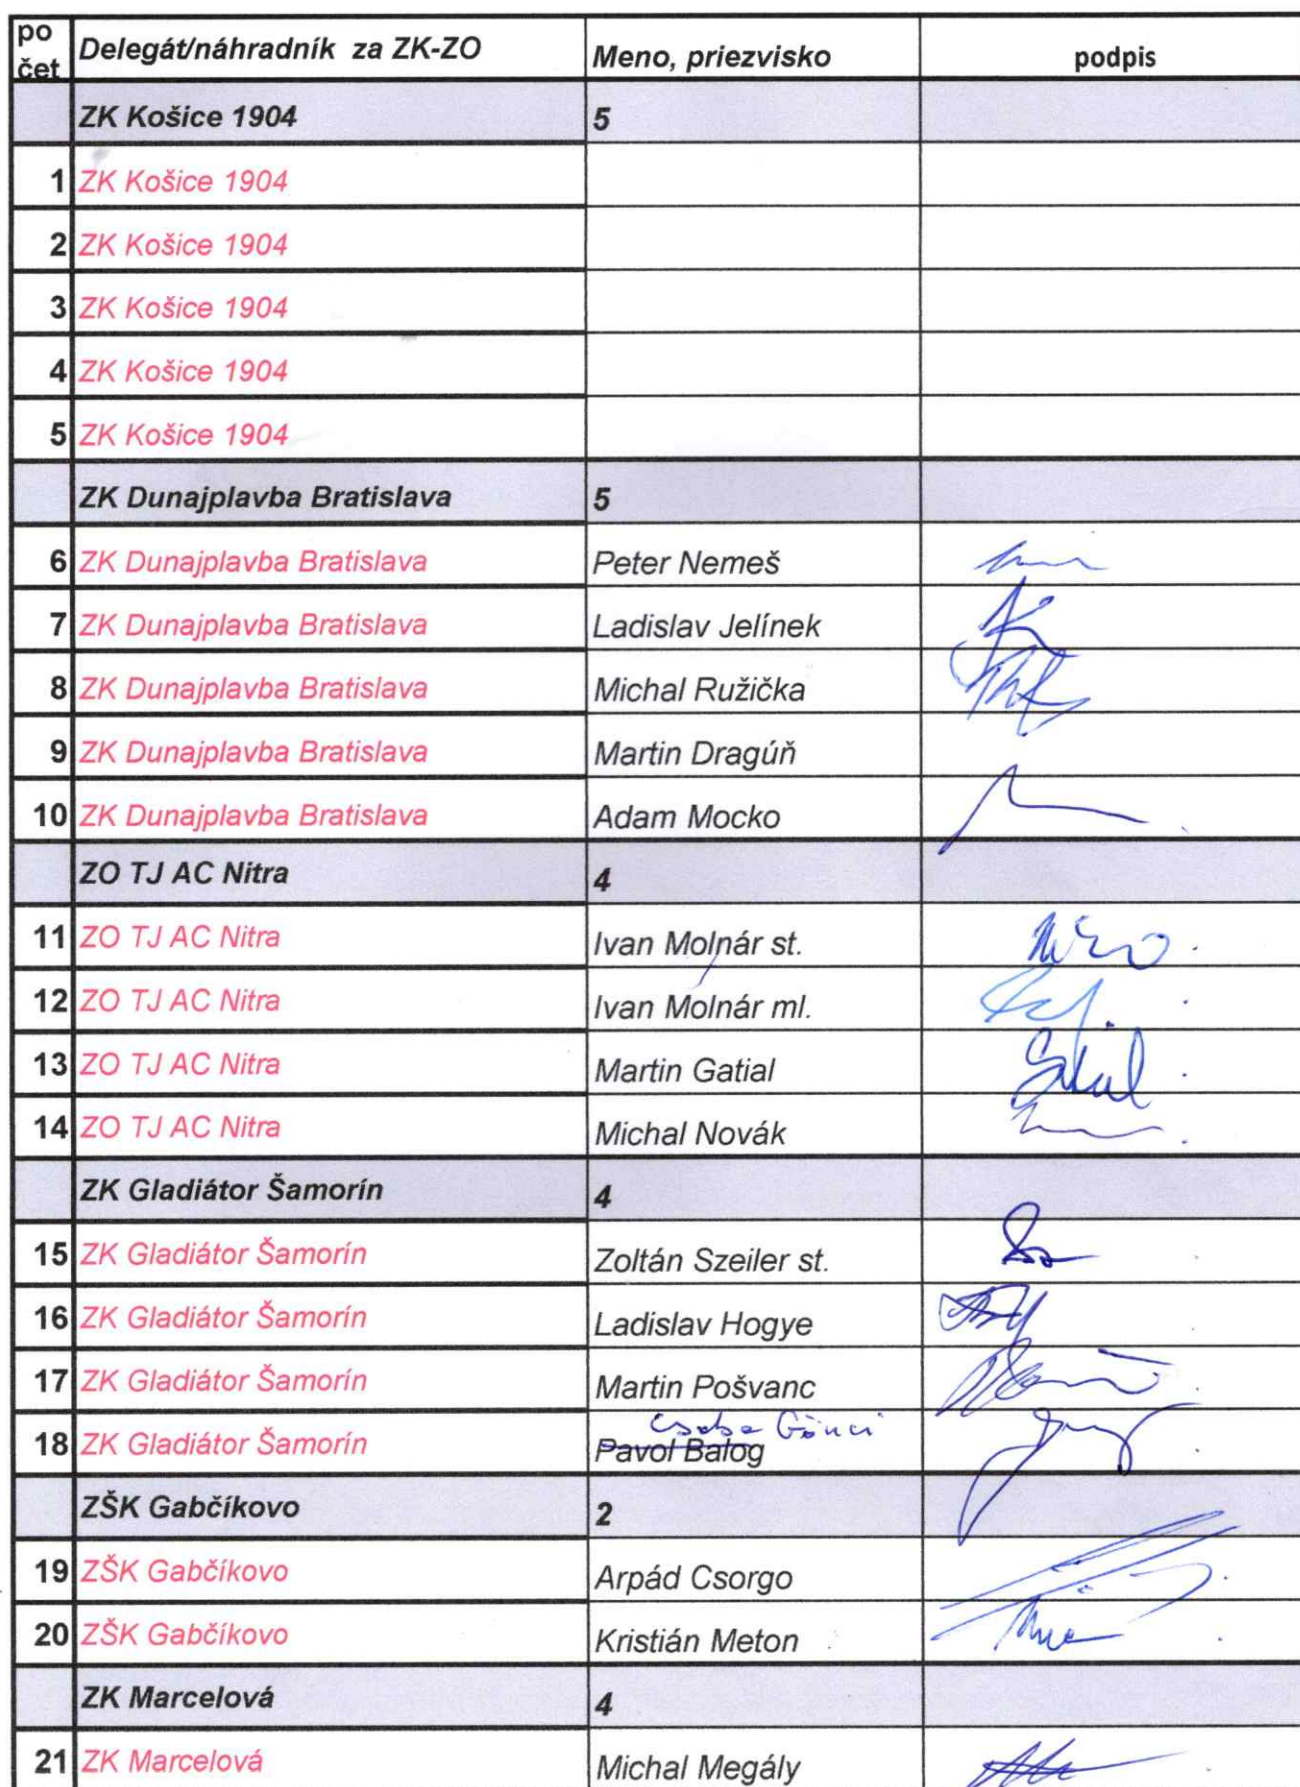 po
čet Delegát/náhradník za ZK-ZO Meno, priezvisko podpis
ZK Košice 1904 5
1 ZK Košice 1904
2 ZK Košice 1904
3 ZK Košice 1904
4 ZK Košice 1904
5 ZK Košice 1904
ZK Dunajplavba Bratislava 5
6 ZK Dunajplavba Bratislava Peter Nemeš
7 ZK Dunajplavba Bratislava Ladislav Jelínek
8 ZK Dunajplavba Bratislava Michal Ružička
9 ZK Dunajplavba Bratislava Martin Dragúň
10 ZK Dunajplavba Bratislava Adam Mocko
ZO TJ AC Nitra 4
11 ZO TJ AC Nitra Ivan Molnár st.
12 ZO TJ AC Nitra Ivan Molnár ml.
13 ZO TJ AC Nitra Martin Gatial
14 ZO TJ AC Nitra Michal Novák
ZK Gladiátor Šamorín 4
15 ZK Gladiátor Šamorín Zoltán Szeiler st.
16 ZK Gladiátor Šamorín Ladislav Hogye
17 ZK Gladiátor Šamorín Martin Pošvanc
Csaba Gönci
18 ZK Gladiátor Šamorín Pavol Balog
ZŠK Gabčíkovo 2
19 ZŠK Gabčíkovo Arpád Csorgo
20 ZŠK Gabčíkovo Kristián Meton
ZK Marcelová 4
21 ZK Marcelová Michal Megály